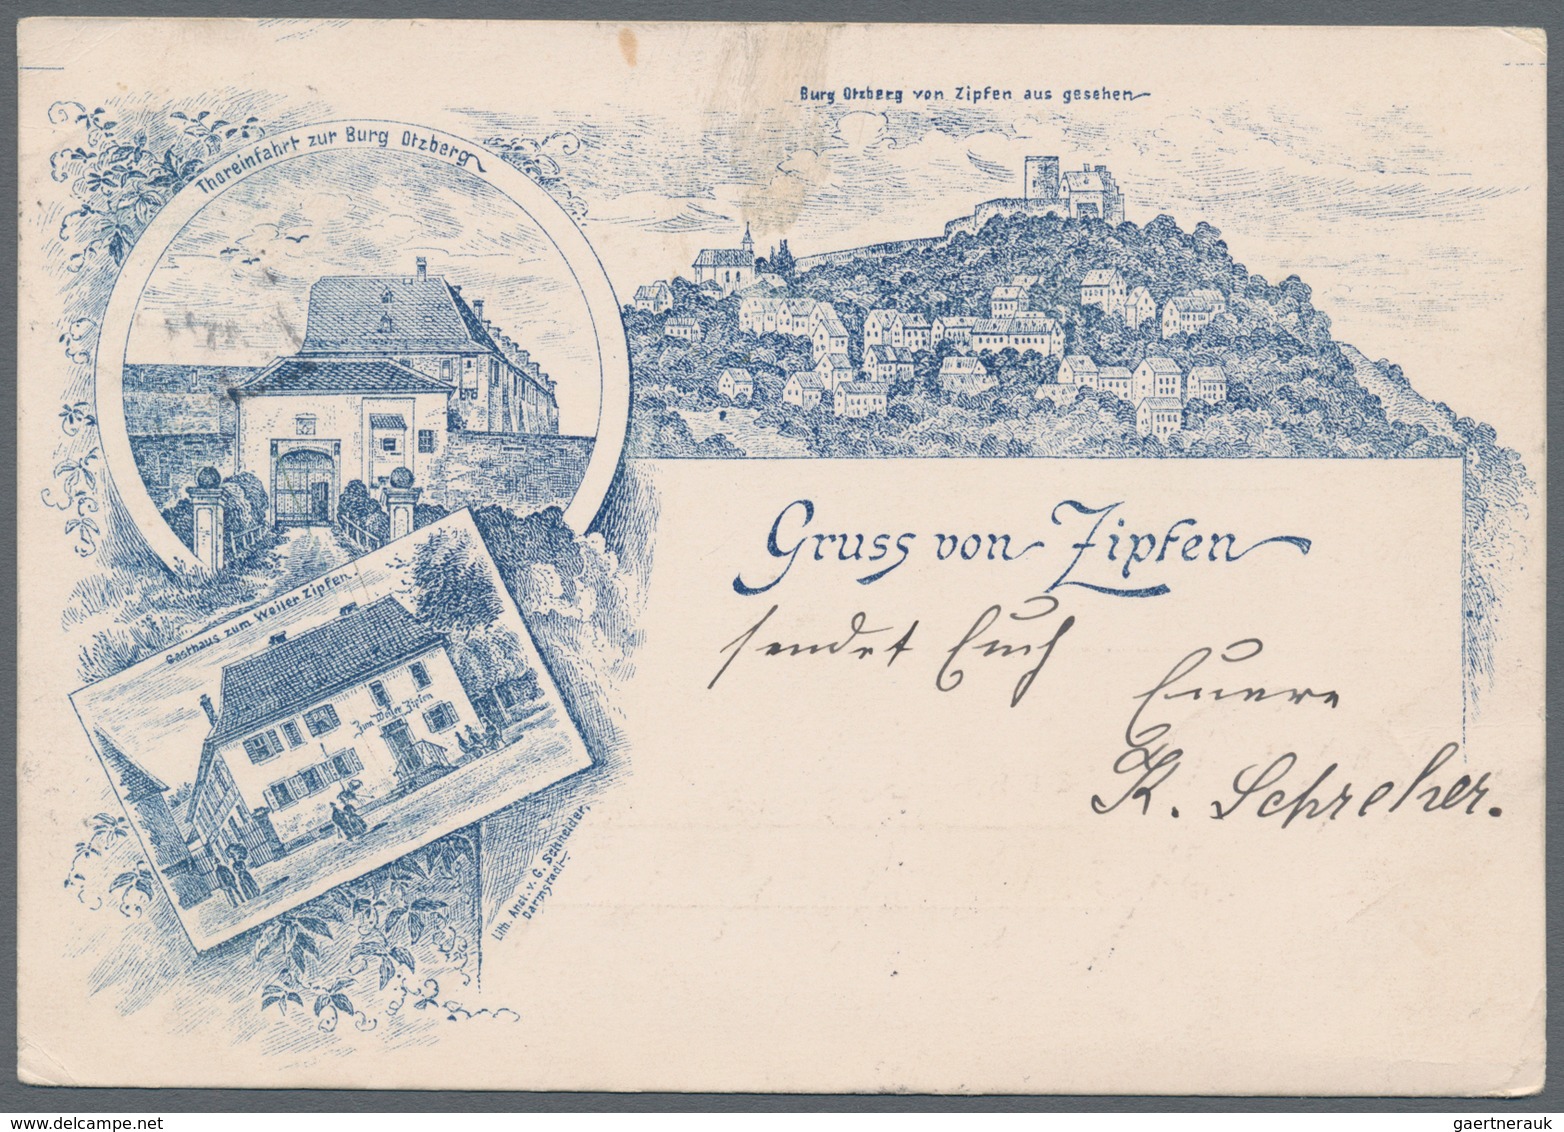 Burg Otzberg von Zipfen aus gesehen
Thoreinfahrt zur Burg Otzberg
Gruss von Zipfen
sendet Euch
Euere
K. Schreher.
Gasthaus zum Weiler Zipfen.
Zum Weiler Zipfen
Lith. Anst. v. G. Schneider,
Darmstadt
gaertnerauk@delcampe.net